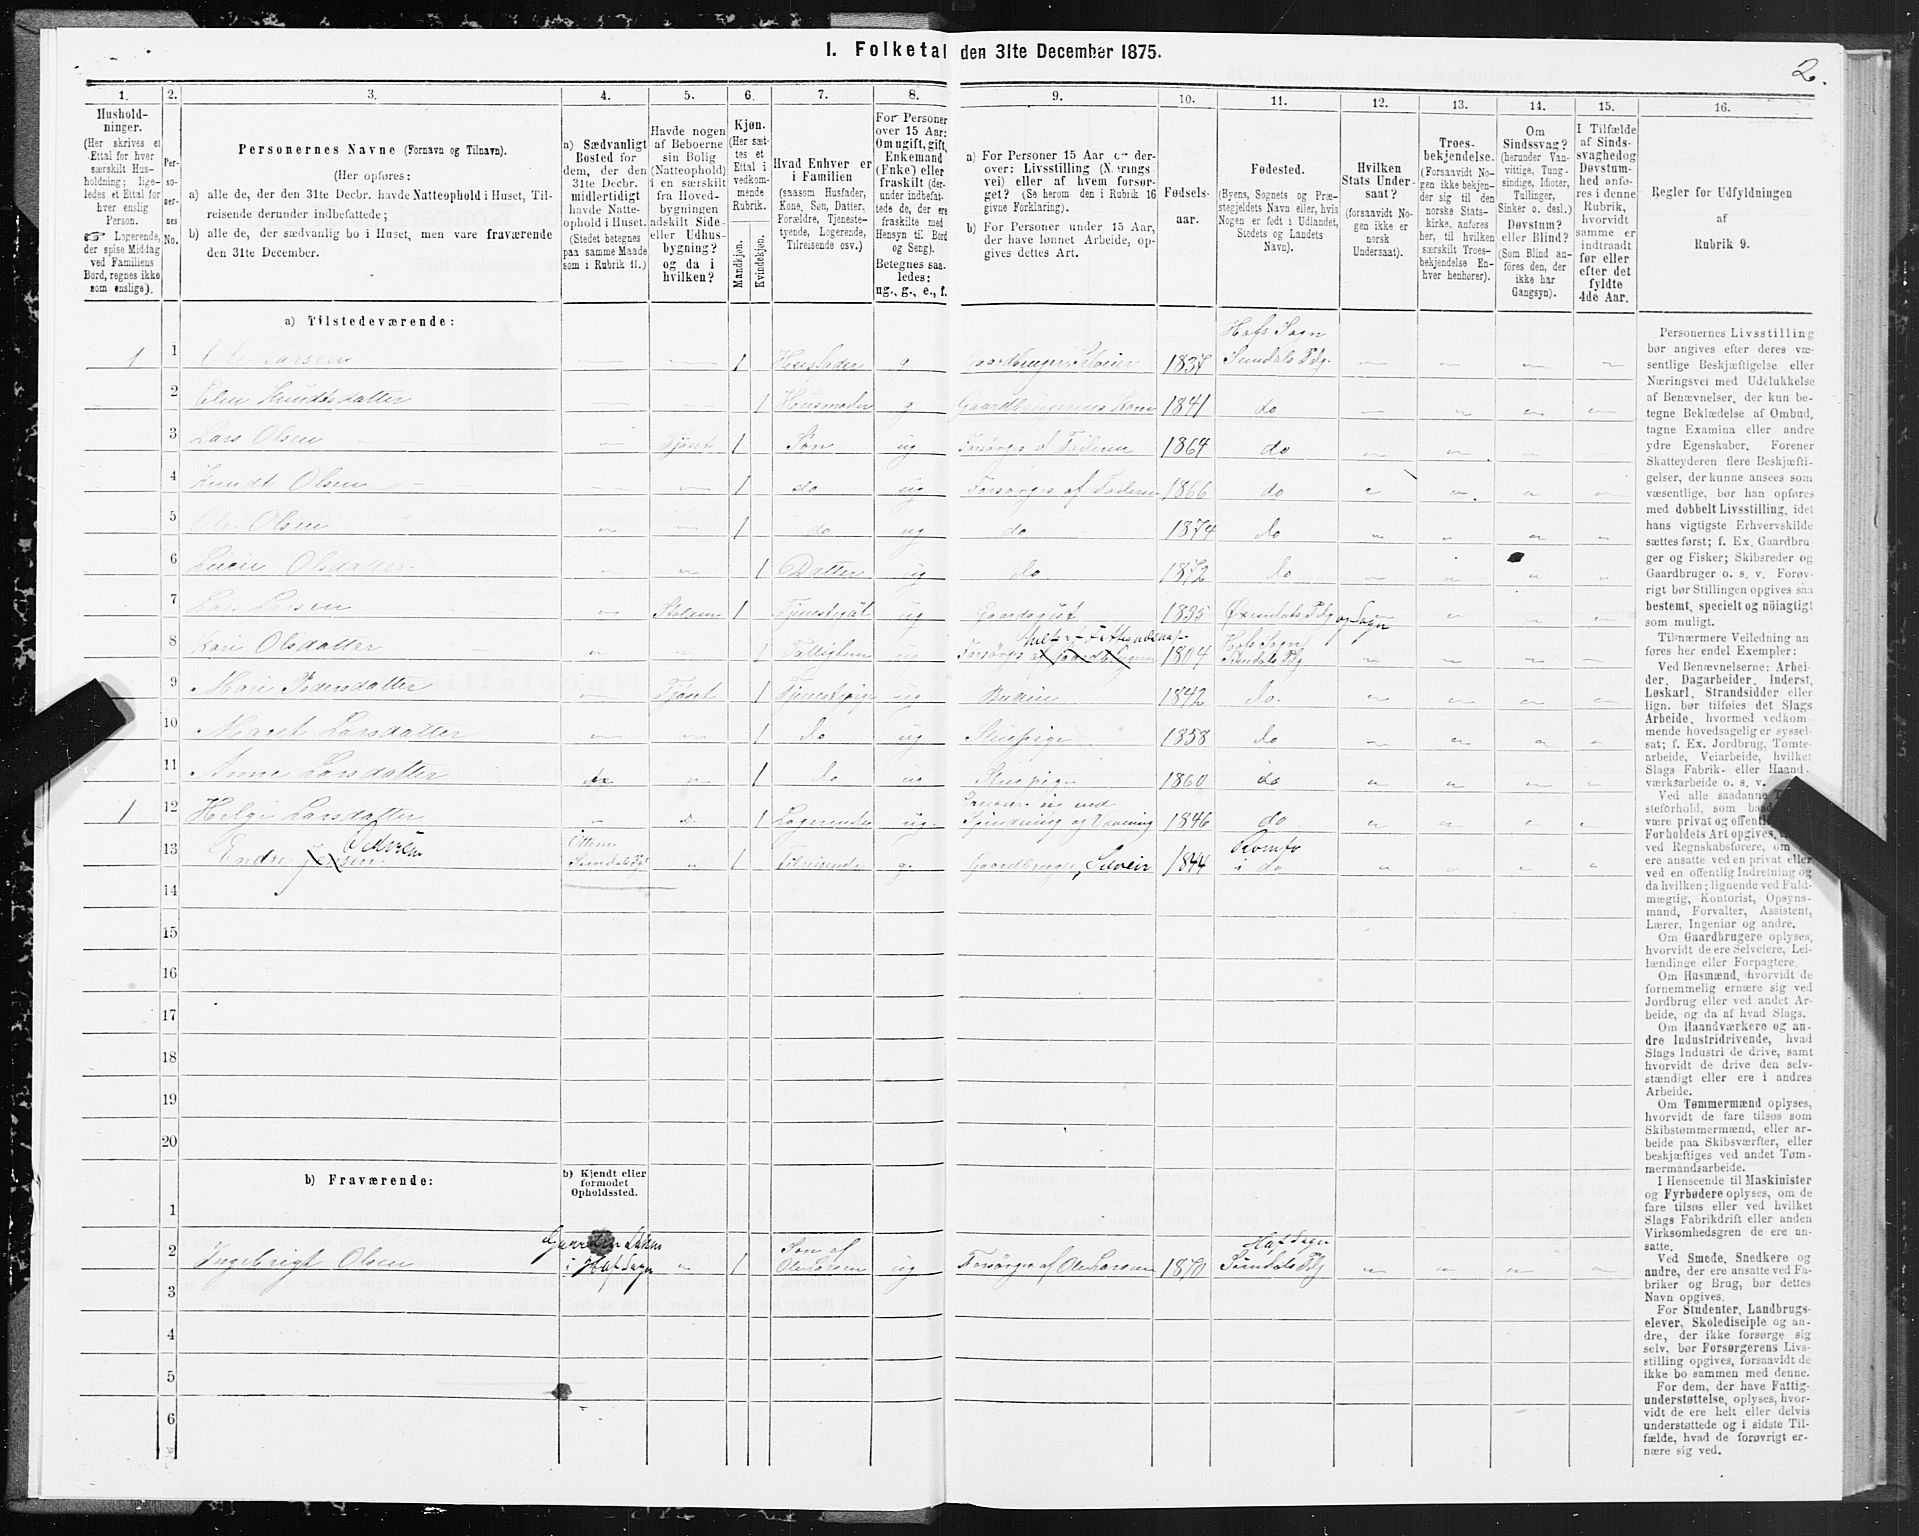 1. Folketal den 31te December 1875.
2.
1. 2. 3. 4. 5. 6. 7. 8. 9. 10. 11. 12. 13. 14. 15. 16.
Hushold-
ninger.
(Her skrives et
Ettal for hver
særskilt Hus-
holdning; lige-
ledes et Ettal for
hver enslig
Person.
☞ Logerende,
der spise Middag
ved Familiens
Bord, regnes ikke
som enslige).
Per-
so-
ner-
nes
No.
Personernes Navne (Fornavn og Tilnavn).
(Her opføres:
a) alle de, der den 31te Decbr. havde Natteophold i Huset, Til-
reisende derunder indbefattede;
b) alle de, der sædvanlig bo i Huset, men vare fraværende
den 31te December.
a) Sædvanligt
Bosted for
dem, der den
31te Decbr.
midlertidigt
havde Natte-
ophold i Huset.
(Stedet betegnes
paa samme Maade
som i Rubrik 11.)
Havde nogen
af Beboerne
sin Bolig
(Natteophold)
i en særskilt
fra Hoved-
bygningen
adskilt Side-
eller Udhus-
bygning?
og da i
hvilken?
Kjøn.
(Her sæt-
tes et
Ettal i
vedkom-
mende
Rubrik.
Mandkjøn.
Kvindekjøn.
Hvad Enhver er
i Familien
(saasom Husfader,
Kone, Søn, Datter,
Forældre, Tjeneste-
tyende, Logerende,
Tilreisende osv.)
For Personer
over 15 Aar:
Om ugift, gift,
Enkemand
(Enke) eller
fraskilt (der-
under indbefat-
tede de, der ere
fraskilte med
Hensyn til Bord
og Seng).
Betegnes saa-
ledes:
ug., g., e., f.
a) For Personer 15 Aar og der-
over: Livsstilling (Nærings-
vei) eller af hvem forsør-
get? (Se herom den i Rubrik 16
givne Forklaring).
b) For Personer under 15 Aar,
der have lønnet Arbeide, op-
gives dettes Art.
Fødsels-
aar.
Fødested.
(Byens, Sognets og Præ-
stegjeldets Navn eller, hvis
Nogen er født i Udlandet,
Stedets og Landets
Navn).
Hvilken
Stats Under-
saat?
(forsaavidt No-
gen ikke er
norsk
Undersaat).
Troes-
bekjendelse.
(Forsaavidt No-
gen ikke bekjen-
der sig til den
norske Stats-
kirke, anføres
her, til hvilken
særskilt Troes-
bekjendelse En-
hver henhører).
Om
Sindssvag?
(herunder Van-
vittige, Tung-
sindige, Idioter,
Tullinger,
Sinker o. desl.)
Døvstum?
eller Blind?
(Som Blind an-
føres den, der
ikke har
Gangsyn).
I Tilfælde
af Sinds-
svaghed og
Døvstum-
hed anfø-
res i denne
Rubrik,
hvorvidt
samme er
indtraadt
før eller
efter det
fyldte
4de Aar.
Regler for Udfyldningen
af
Rubrik 9.
a) Tilstedeværende:
1 1 Ole Larsen 1 Husfader g Gaardbruger Selveier 1837 Hofs Sogn Sundals Pdg.
2 Elen Knudsdatter 1 Husmoder g Gaardbrugerens Kone 1841 do
3 Lars Olsen Fjøset 1 Søn ug Forsørges af Faderen 1864 do
4 Knudt Olsen 1 do ug Forsørges af Faderen 1866 do
5 Ole Olsen 1 do ug do 1874 do
6 Olsdatter 1 Datter ug do 1872 do
7 Lars Larsen Stalden 1 ug Gaardsgut 1855 Øxendals Pdg og Sogn
8 Kari Olsdatter 1 ug Forsørges 1804 Hofs Sogn Sundals Pdg
9 Mari Pedersdatter Fjøset 1 Tjenestepige ug Budeie 1842 do.
10 Marit Larsdatter 1 do ug Stuepige 1858 do
11 Anne Larsdatter 1 do ug Stuepige 1860 do
1 12 Helge Larsdatter 1 Logerende ug. Ernærer sig ved Spindning og Vævning 1846 do
13 Endre Pedersen Sundals Pgd 1 Tilreisende g. Gaardbruger, Selveir 1844 Romfo i do
14
15
16
17
18
19
20
b) Fraværende:
b) Kjendt eller
formodet
Opholdssted.
1
2 Ingebrigt Olsen i Hof Sogn 1 Søn af Ole Larsen ug Forsørges af Ole Larsen 1870 Hof Sogn Sundals Pdg
3
4
5
6
Personernes Livsstilling
bør angives efter deres væ-
sentlige Beskjæftigelse eller
Næringsvei med Udelukkelse
af Benævnelser, der kun be-
tegne Beklædelse af Ombud,
tagne Examina eller andre
ydre Egenskaber. Forener
Skatteyderen flere Beskjæfti-
gelser, der kunne ansees som
væsentlige, bør han opføres
med dobbelt Livsstilling, idet
hans vigtigste Erhvervskilde
sættes først; f. Ex. Gaardbru-
ger og Fisker; Skibsreder og
Gaardbruger o. s. v. Forøv-
rigt bør Stillingen opgives saa
bestemt, specielt og nöiagtigt
som muligt.
Til nærmere Veiledning an-
føres her endel Exempler:
Ved Benævnelserne: Arbei-
der, Dagarbeider, Inderst,
Løskarl, Strandsidder eller
lign. bør tilføies det Slags
Arbeide, hvormed vedkom-
mende hovedsagelig er syssel-
sat; f. Ex. Jordbrug, Tomte-
arbeide, Veiarbeide, hvilket
Slags Fabrik- eller Haand-
værksarbeide o. s. v.
Ved alle saadanne
steforhold, som
være privat og offentlig
Forholdets Art opgives,
ved Regnskabsførere, om
ere ansatte ved en privat eller
ved en offentlig Indretning og
da hvilken; lignende ved Fuld-
mægtig, Kontorist, Opsyns-
mand, Forvalter, Assistent,
Lærer, Ingeniør og andre.
Om Gaardbrugere oplyses,
hvorvidt de ere Selveiere, Lei-
lændinge eller Forpagtere.
Om Husmænd, hvorvidt de
fornemmelig ernære sig ved
Jordbrug eller ved andet Ar-
beide, og da af hvad Slags.
Om Haandværkere og an-
dre Industridrivende, hvad
Slags Industri de drive, samt
hvorvidt de drive den selv-
stændigt eller ere i andres
Arbeide.
Om Tømmermænd oplyses,
hvorvidt de fare tilsøs som
Skibstømmermænd, eller ar-
beide paa Skibsværfter, eller
beskjæftiges ved andet Tøm-
mermandsarbeide.
I Henseende til Maskinister
og Fyrbødere oplyses, om de
fare tilsøs eller ved hvilket
Slags Fabrikdrift eller anden
Virksomhedsgren de ere an-
satte.
Ved Smede, Snedkere og
andre, der ere ansatte ved Fa-
briker og Brug, bør dettes
Navn opgives.
For Studenter, Landbrugs-
elever, Skoledisciple og an-
dre, der ikke forsørge sig
selv, bør Forsørgerens Livs-
stilling opgives, forsaavidt de
ikke bo sammen med denne.
For dem, der have Fattig-
understøttelse, oplyses, hvor-
vidt de ere helt eller delvis
understøttede og i sidste Til-
fælde, hvad de forøvrigt er-
nære sig ved.